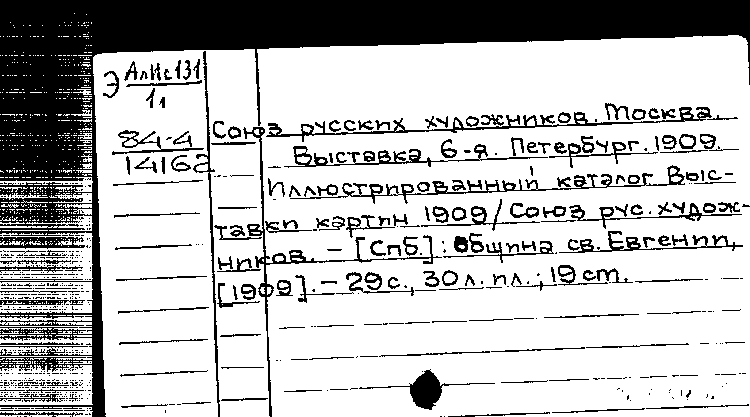 Э АлИс131
11
84-4
14162
Союз русских художников. Москва.
Выставка, 6-я. Петербург. 1909.
Иллюстрированный каталог Выс-
тавки картин 1909/Союз рус. худож-
ников. – [Спб.]: община св. Евгении,
[1909]. – 29с., 30л. пл.; 19 cm.